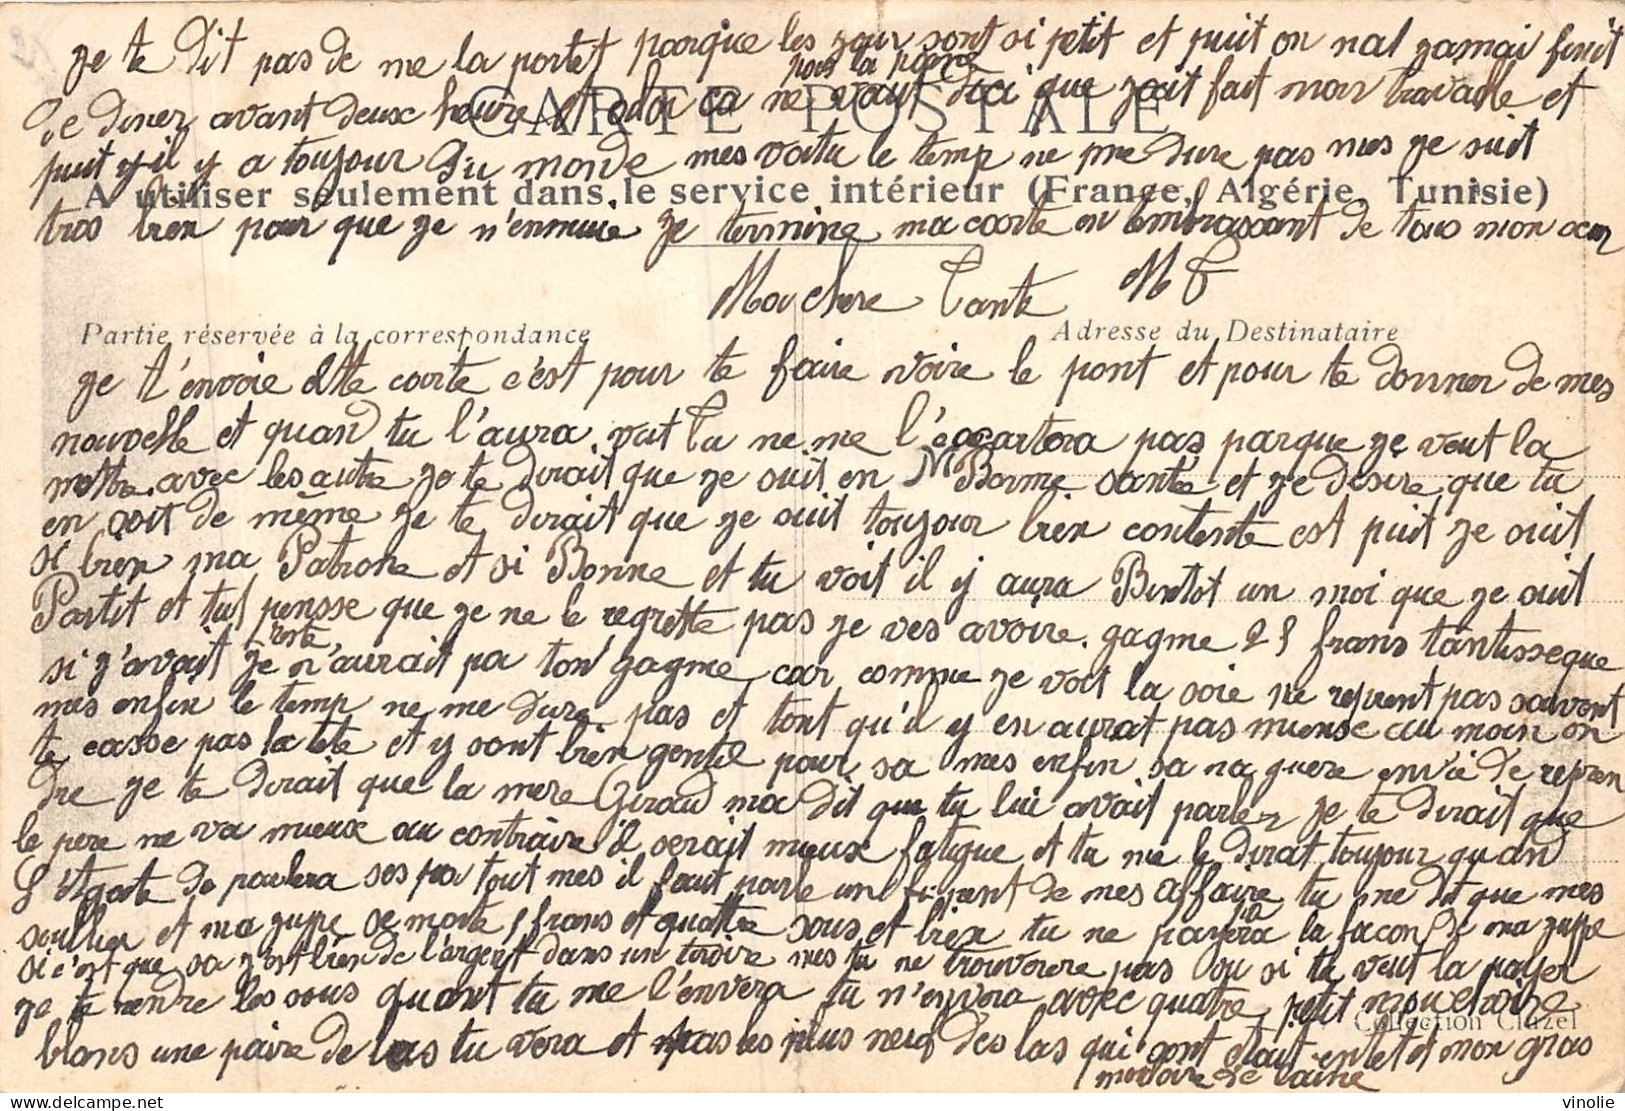 je te dit pas de me la portet parque les jour sont si petit et puit on nal jamai finit
pour la peine
de diner avant deux heure et alor ca ne vaut dici que jait fait mon travaille et
CARTE POSTALE
puit y il y a toujour du monde mes voitu le temp ne me dure pas mes je suit
A utiliser seulement dans le service intérieur (France, Algérie, Tunisie)
tros bien pour que je n'ennuie je termine ma carte en tembrassant de tous mon coeur
Ma chere Tante MT
Partie réservée à la correspondance Adresse du Destinataire
je t'envoie cette carte c'est pour te faire voire le pont et pour te donner de mes
nouvelle et quand tu l'aura vat Tu ne me l'écartera pas parque je veut la
mettre avec les autre je te dirait que je suit en Bonne santée et je desire que tu
en soit de même je te dirait que je suit toujour bien contente est puit je suit
si bien ma Patrone et si Bonne et tu voit il y aura Bintot un moi que je suit
Partit et tul pensse que je ne le regrette pas je ves avoire gagme 25 frans tantisseque
si j'avait resté je n'aurait pa ton gagme car comme je voit la soie ne reprent pas souvent
mes enfin le temp ne me dure pas et tont qu'il y en aurat pas mieuse au moin on
te casse pas la tete et y sont bien gentil pour sa mes enfin sa na guere envie de repren
dre je te dirait que la mere Giraud ma dit que tu lui avait parler je te dirait que
le pere ne va mieux au contraire il serait mieux fatigue et tu me le dirat toujour quand
L'Agate de parlera ses pa tout mes il faut parle un de mes affaire tu me dit que mes
soullier et ma juppe se monte 5 frans et quattre sous et bien tu ne payera la facon de ma juppe
si c'ert que sa j'ert bien de l'argent dans un tiroire mes tu ne trouverere pas ou si tu veut la payer
je te rendre les sous quant tu me l'envera tu n'envera avec quatre petit mouchoire
Collection Clazel
blans une paire de bas tu vera et pas les plus neuf des las qui sont etait entet et mon gras
mouchoire de laine
vinolie